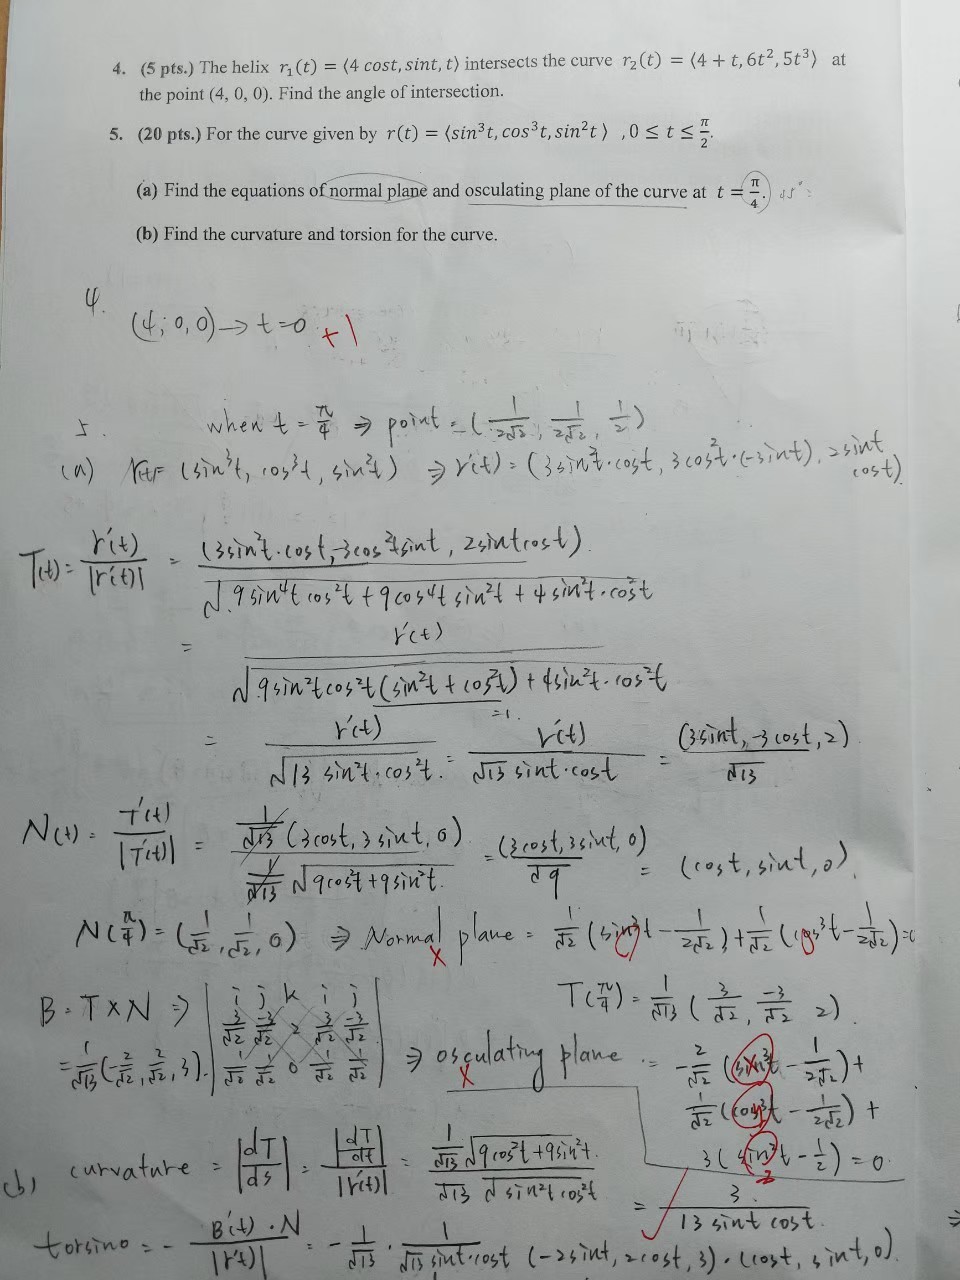 4. (5 pts.) The helix r₁(t) = ⟨4 cost, sint, t⟩ intersects the curve r₂(t) = ⟨4 + t, 6t², 5t³⟩ at
the point (4, 0, 0). Find the angle of intersection.
5. (20 pts.) For the curve given by r(t) = ⟨sin³t, cos³t, sin²t ⟩ , 0 ≤ t ≤ π/2.
(a) Find the equations of normal plane and osculating plane of the curve at t = π/4.
(b) Find the curvature and torsion for the curve.
4.
(4, 0, 0) → t=0 +1
5. when t = π/4 ⇒ point = (1/2√2, 1/2√2, 1/2)
(a) r(t)= (sin³t, cos³t, sin²t) ⇒ r'(t) = (3sin²t·cost, 3cos²t·(-sint), 2sint
cost)
T(t) = r'(t)/|r'(t)| = (3sin²t·cost, -3cos²tsint, 2sintcost)/√9sin⁴t cos²t + 9cos⁴t sin²t + 4sin²t·cos²t
= r'(t)/√9sin²tcos²t(sin²t + cos²t) + 4sin²t·cos²t
=1.
= r'(t)/√13 sin²t·cos²t. = r'(t)/√13 sint·cost = (3sint, -3cost, 2)/√13
N(t) = T'(t)/|T'(t)| = 1/√13 (3cost, 3sint, 0)/1/√13 √9cos²t+9sin²t. = (3cost, 3sint, 0)/√9 = (cost, sint, 0).
N(π/4) = (1/√2, 1/√2, 0) ⇒ Normal plane = 1/√2 (sin³t - 1/2√2) + 1/√2 (cos³t - 1/2√2)=0
x
B = T×N ⇒ | i j k i j T(π/4) = 1/√13 (3/√2, -3/√2, 2).
3/√2 -3/√2 2 3/√2 -3/√2
= 1/√13 (-2/√2, 2/√2, 3). 1/√2 1/√2 0 1/√2 1/√2 | ⇒ osculating plane = -2/√2 (sin³t - 1/2√2) +
x
1/√2 (cos³t - 1/2√2) +
3 (sin²t - 1/2) = 0.
(b) curvature = |dT/ds| = |dT/dt|/|r'(t)| = 1/√13 √9cos²t+9sin²t./√13 √sin²t cos²t = 3/13 sint cost.
torsino = - B'(t)·N/|r'(t)| = - 1/√13 · 1/√13 sint·cost (-2sint, 2cost, 3)·(cost, sint, 0).
⇒